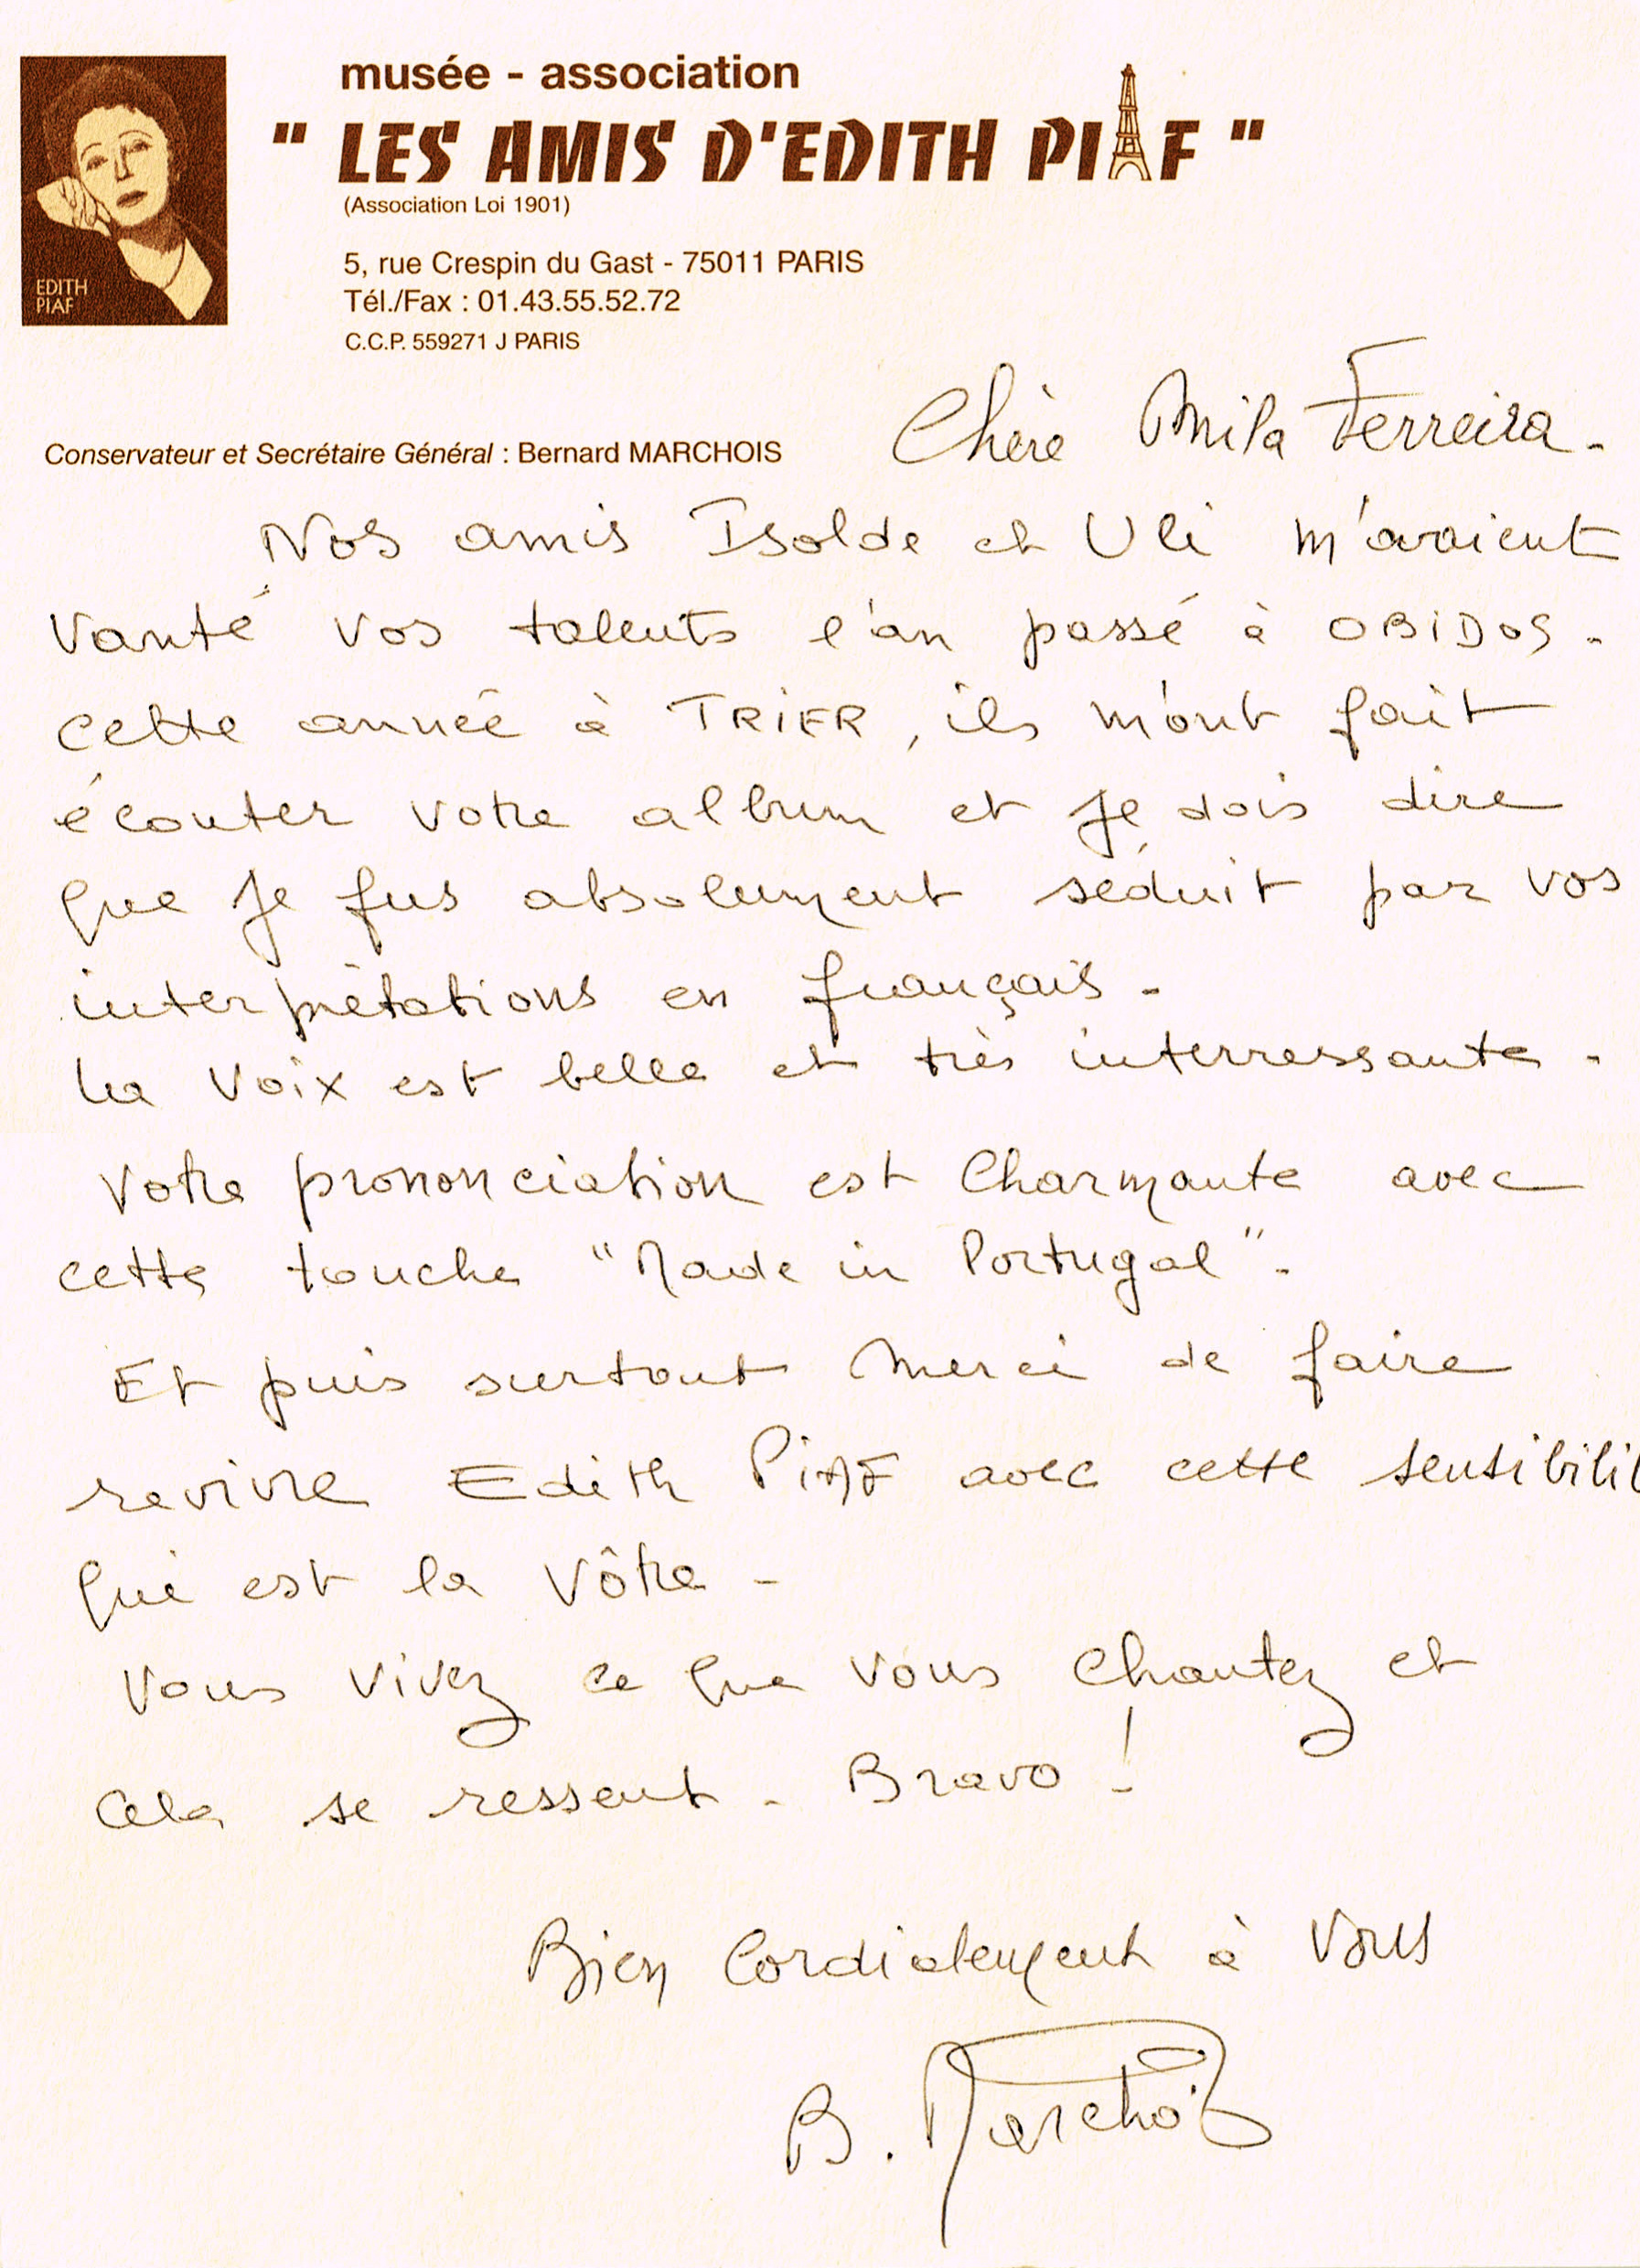 musée - association
" LES AMIS D'EDITH PIAF "
(Association Loi 1901)
5, rue Crespin du Gast - 75011 PARIS
Tél./Fax : 01.43.55.52.72
C.C.P. 559271 J PARIS
EDITH
PIAF
Conservateur et Secrétaire Général : Bernard MARCHOIS
Chère Mila Ferreira.
Nos amis Isolde et Uli m'avaient
vanté vos talents l'an passé à OBIDOS.
cette année à TRIER, ils m'ont fait
écouter votre album et je dois dire
que je fus absolument séduit par vos
interprètations en français.
La voix est belle et très interressante.
Votre prononciation est charmante avec
cette touche "Made in Portugal".
Et puis surtout merci de faire
revivre Edith PIAF avec cette sensibilit
qui est la vôtre.
Vous vivez ce que vous chantez et
cela se ressent. Bravo !
Bien Cordialement à Vous
B. Marchois